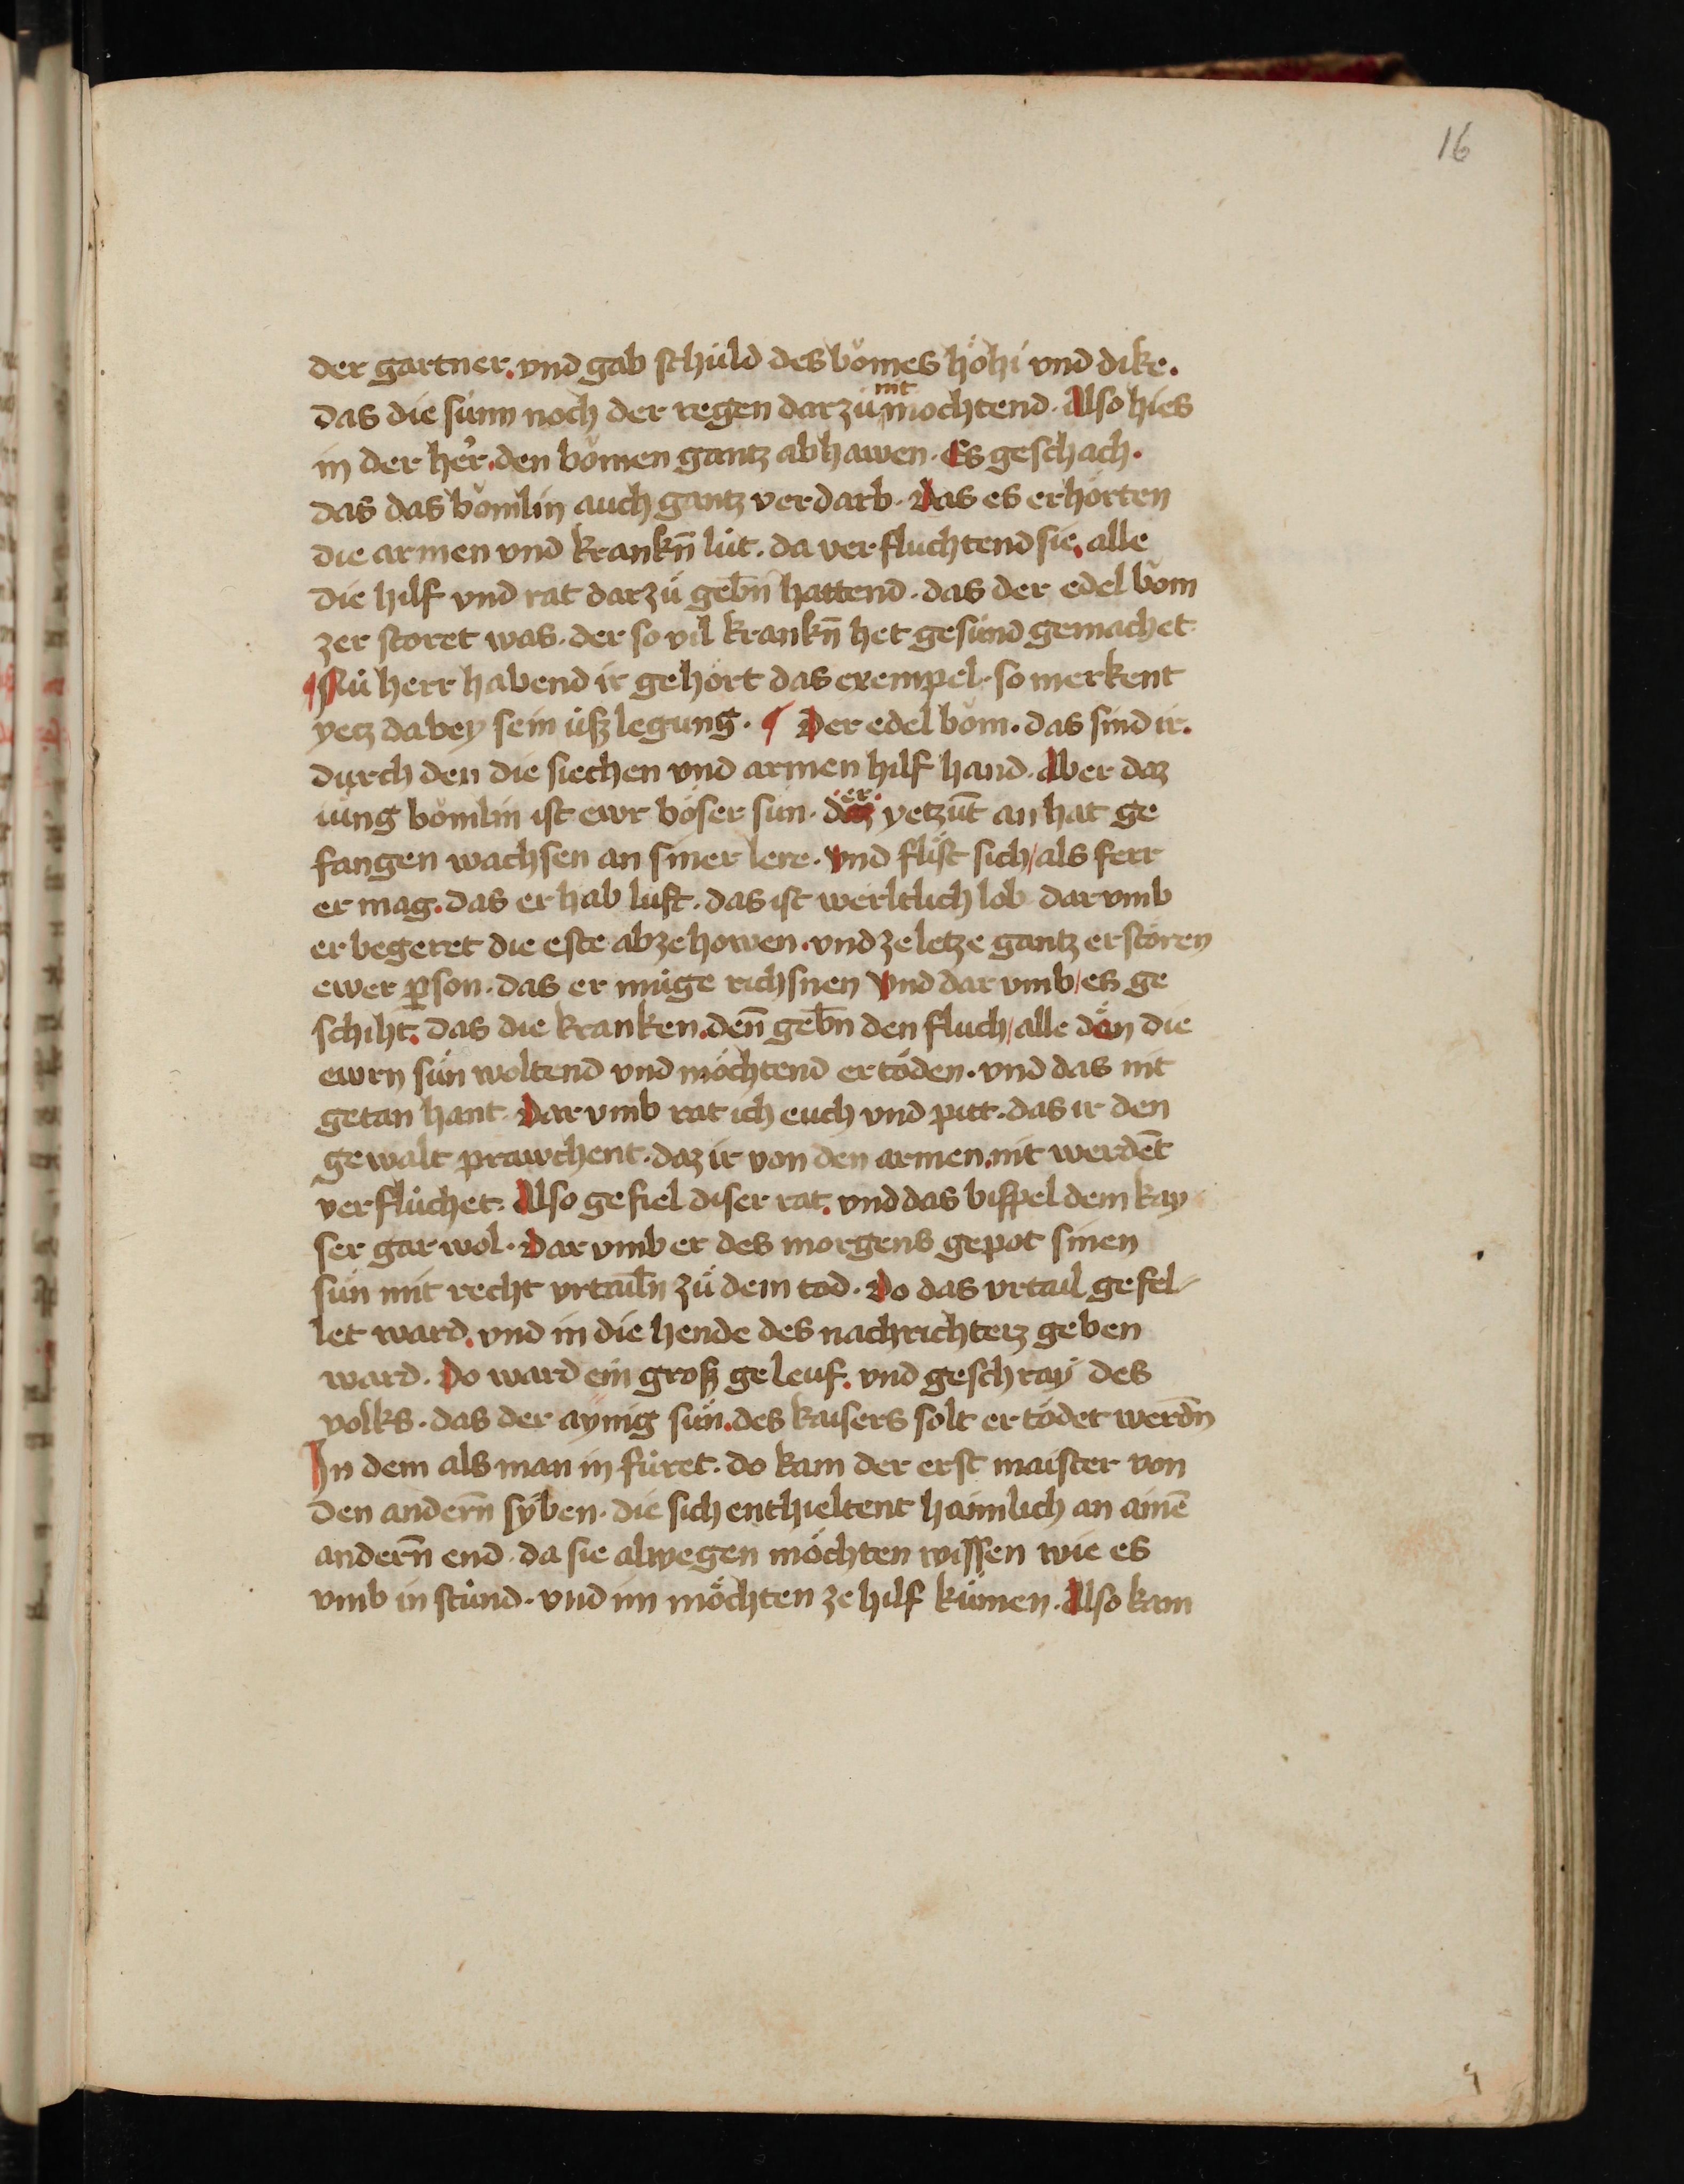 16
der gartner. vnd gab schuld des bömes höhi vnd dike.
das die sunn noch der regen darzů nit mochtend. Also hies
in der her̛. den bömen gantz abhawen. Es geschach.
das das bömlin auch gantz verdarb. Das es erhörten
die armen vnd krankn̄ lüt. da verfluchtend sie. alle
die hilf vnd rat darzů geb̄n hattend. das der edel bom
zerstoret was. der so vil krankn̄ het gesund gemachet
¶ Nů herr habend ir gehört das exempel. so merkent
yetz dabey sein ußlegung. ¶ Der edel bom. das sind ir.
durch den die siechen vnd armen hilf hand. Aber daz
iung bömlin ist ewr böser sun. der yetzūt an hat ge
fangen wachsen an siner lere. Vnd flist sich / als ferr
er mag. das er hab luft. das ist werltlich lob darvmb
er begeret die este abzehowen. vnd ze letze gantz erstören
ewer p̱son. das er muge richsnen Vnd darvmb / es ge
schiht. das die kranken. den̄ geb̄n den fluch / alle dön die
ewrn sun woltend vnd möchtend ertöden. vnd das nit
getan hant. Darvmb rat ich euch vnd pitt. das ir den
gewalt prawchent. daz ir von den armen. nit werdēt
verflůchet. Also gefiel diser rat. vnd das bispel dem kay
ser gar wol. Darvmb er des morgens gepot sinen
sun mit recht vrtail̄n zů dem tod. Do das vrtail gefel-
let ward. vnd in die hende des nachrichterz geben
ward. Do ward ein groß geleuf. vnd geschray des
volks. das der aynig sun. des kaisers solt ertödet werdn̄
In dem als man in fůret. do kam der erst maister von
den andern̄ syben. die sich enthieltent haimlich an ainē
andern̄ end. da sie alwegen möchten wissen wie es
vmb in stůnd. vnd im möchten ze hilf kumen. Also kam